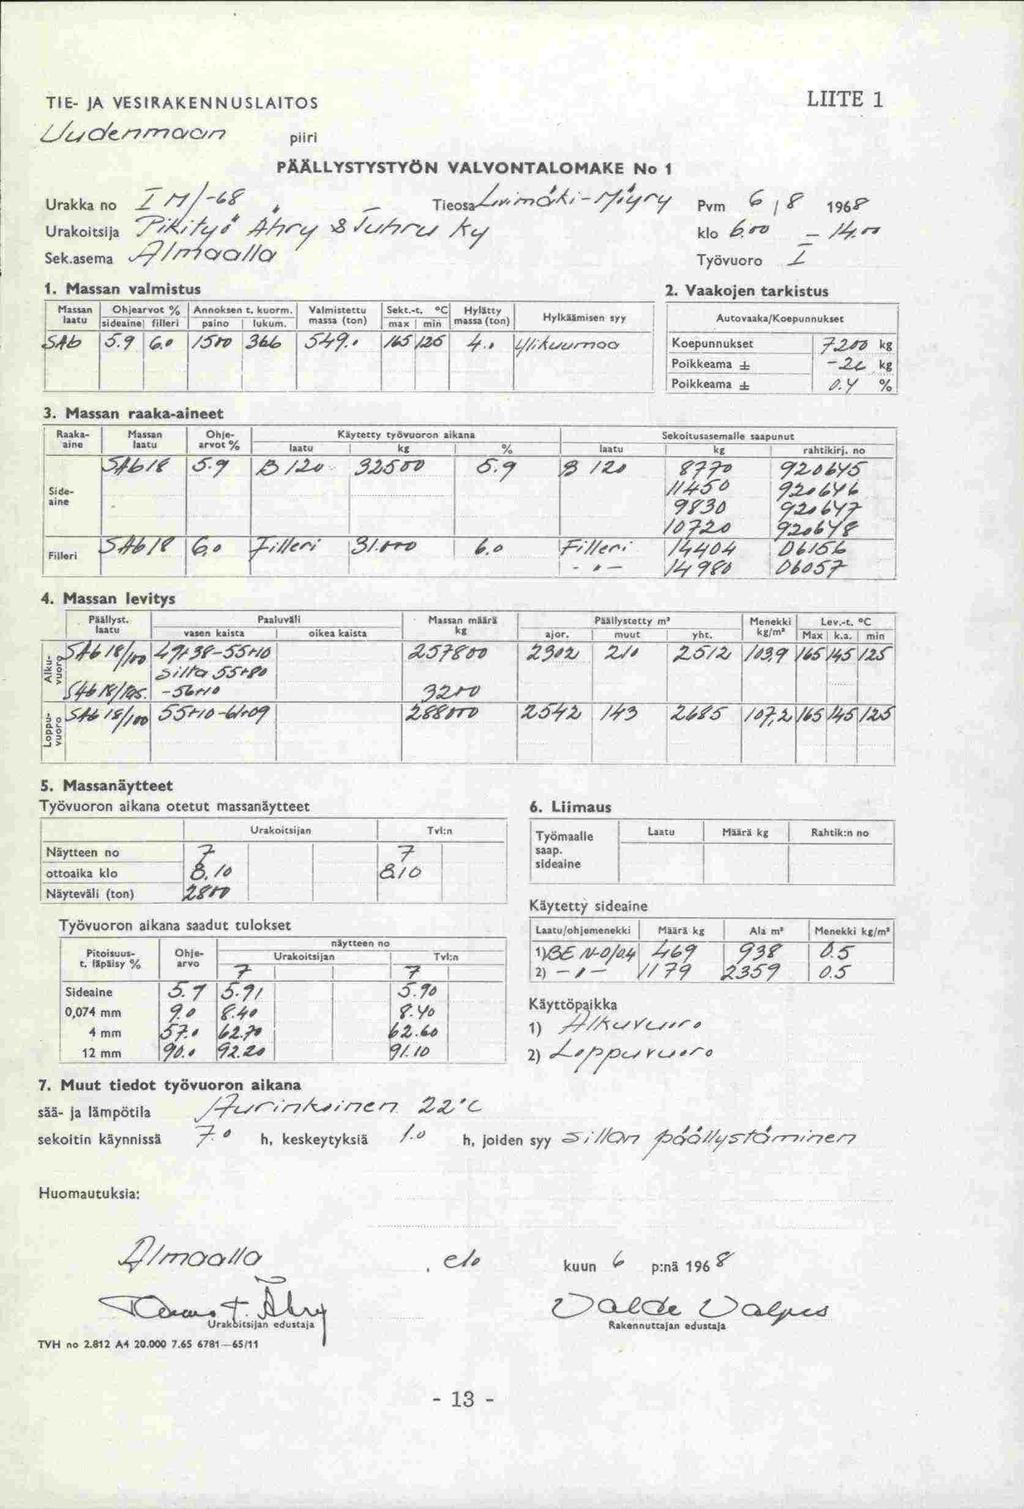 TIE- JA VESIRAKENNUSLAITOS LIITE 1
Uudenmaan piiri
PÄÄLLYSTYSTYÖN VALVONTALOMAKE No 1
Urakka no I M/-68 Tieosa Levimäki-Möyry Pvm 6 / 8 1968
Urakoitsija Pikityö Ähry & Juhru Ky klo 6.00 — 14.00
Sek.asema Almaalla Työvuoro I
1. Massan valmistus 2. Vaakojen tarkistus
Massan laatu Ohjearvot % Annoksen t. kuorm. Valmistettu massa (ton) Sekt.-t. °C Hylätty massa (ton) Hylkäämisen syy Autovaaka/Koepunnukset
sideaine filleri paino lukum. max min
SAb 5.9 6.0 1500 366 549.0 165 125 4.0 Ylikuumaa Koepunnukset 7200 kg
Poikkeama ± -26 kg
Poikkeama ± 0.4 %
3. Massan raaka-aineet
Raaka-aine Massan laatu Ohje-arvot % Käytetty työvuoron aikana Sekoitusasemalle saapunut
laatu kg % laatu kg rahtikirj. no
SAb18 5.9 B 120 32500 5.9 B 120 8770 920645
Side-aine 11450 920646
9830 920647
10720 920648
Filleri SAb18 6.0 Filleri 31.000 6.0 Filleri 14404 06156
- " - 14980 06057
4. Massan levitys
Päällyst. laatu Paaluväli Massan määrä kg Päällystetty m² Menekki kg/m² Lev.-t. °C
vasen kaista oikea kaista ajor. muut yht. Max k.a. min
Alku-vuoro SAb 18/100 49+38-55+10 257800 2302 210 2512 103,9 165 145 125
Silta 55+80
SAb 18/125. -56+10 3200
Loppu-vuoro SAb 18/100 55+10-61+09 288000 2542 143 2685 107,2 165 145 125
5. Massanäytteet
Työvuoron aikana otetut massanäytteet 6. Liimaus
Urakoitsijan Tvl:n Työmaalle saap. sideaine Laatu Määrä kg Rahtik:n no
Näytteen no 7 7
ottoaika klo 8.10 8.10
Näyteväli (ton) 2800
Käytetty sideaine
Työvuoron aikana saadut tulokset Laatu/ohjemenekki Määrä kg Ala m² Menekki kg/m²
Pitoisuus- t. läpäisy % Ohje-arvo näytteen no 1) BE N-0/0.4 469 938 0.5
Urakoitsijan Tvl:n 2) - " - 1179 2359 0.5
7 7
Sideaine 5.9 5.91 5.90 Käyttöpaikka
0,074 mm 9.0 8.40 8.40 1) Alkuvuoro
4 mm 57.0 62.70 62.60
12 mm 90.0 92.20 91.10 2) Loppuvuoro
7. Muut tiedot työvuoron aikana
sää- ja lämpötila Aurinkoinen 22°C
sekoitin käynnissä 7.0 h, keskeytyksiä 1.0 h, joiden syy Sillan päällystäminen
Huomautuksia:
Almaalla , elo kuun 6 p:nä 1968
Ähry Valde Valpas
Urakoitsijan edustaja Rakennuttajan edustaja
TVH no 2.812 A4 20.000 7.65 6781—65/11
- 13 -